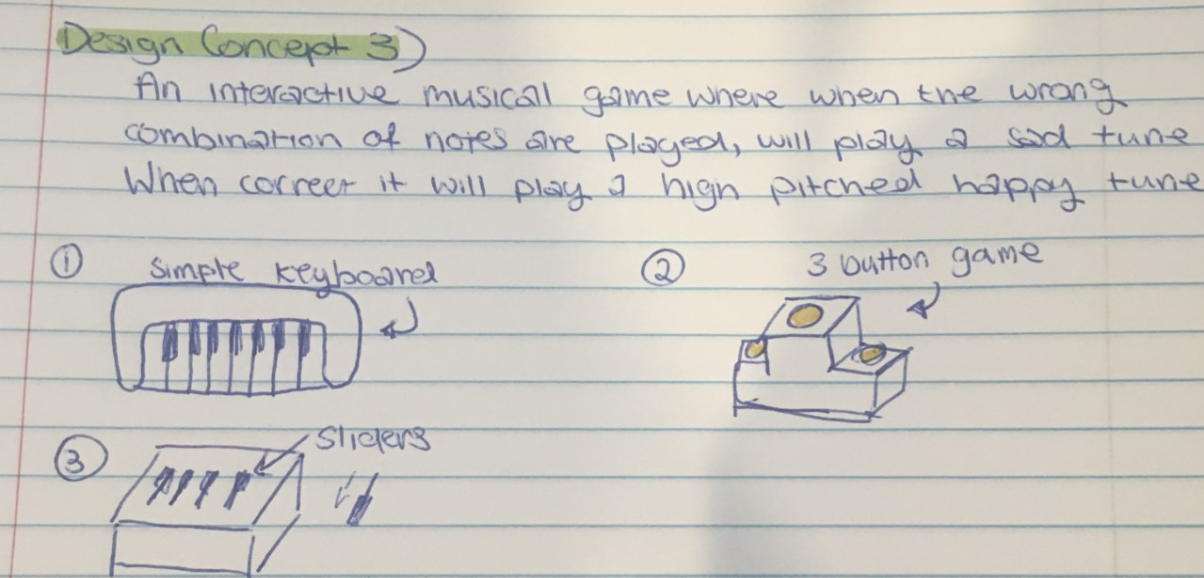 Design Concept 3)
An interactive musical game where when the wrong
combination of notes are played, will play a sad tune
When correct it will play a high pitched happy tune
① Simple keyboard
② 3 button game
③ Sliders